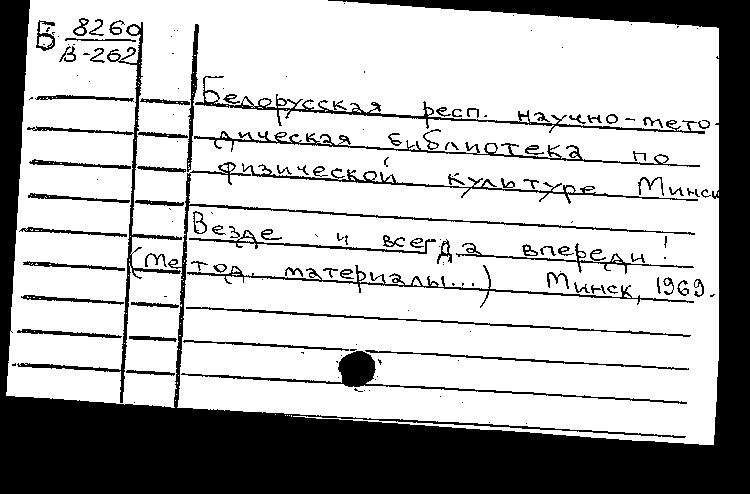 Б 8260
В-262
Белорусская респ. научно-мето-
дическая библиотека по
физической культуре. Минск
Везде и всегда впереди!
(Метод. материалы...) Минск, 1969.